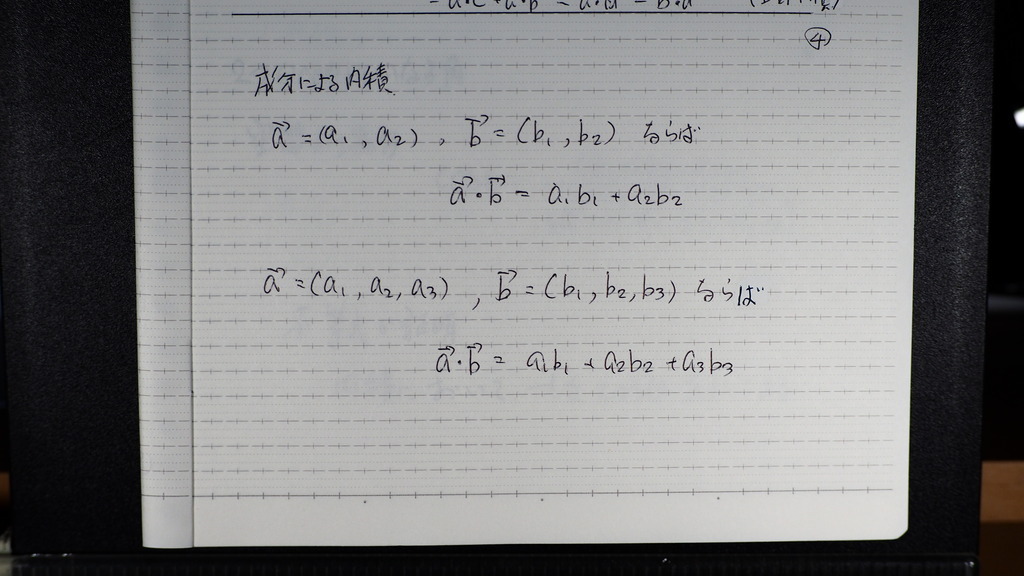 ④
成分による内積
a⃗ = (a₁, a₂), b⃗ = (b₁, b₂) ならば
a⃗・b⃗ = a₁b₁ + a₂b₂
a⃗ = (a₁, a₂, a₃), b⃗ = (b₁, b₂, b₃) ならば
a⃗・b⃗ = a₁b₁ + a₂b₂ + a₃b₃